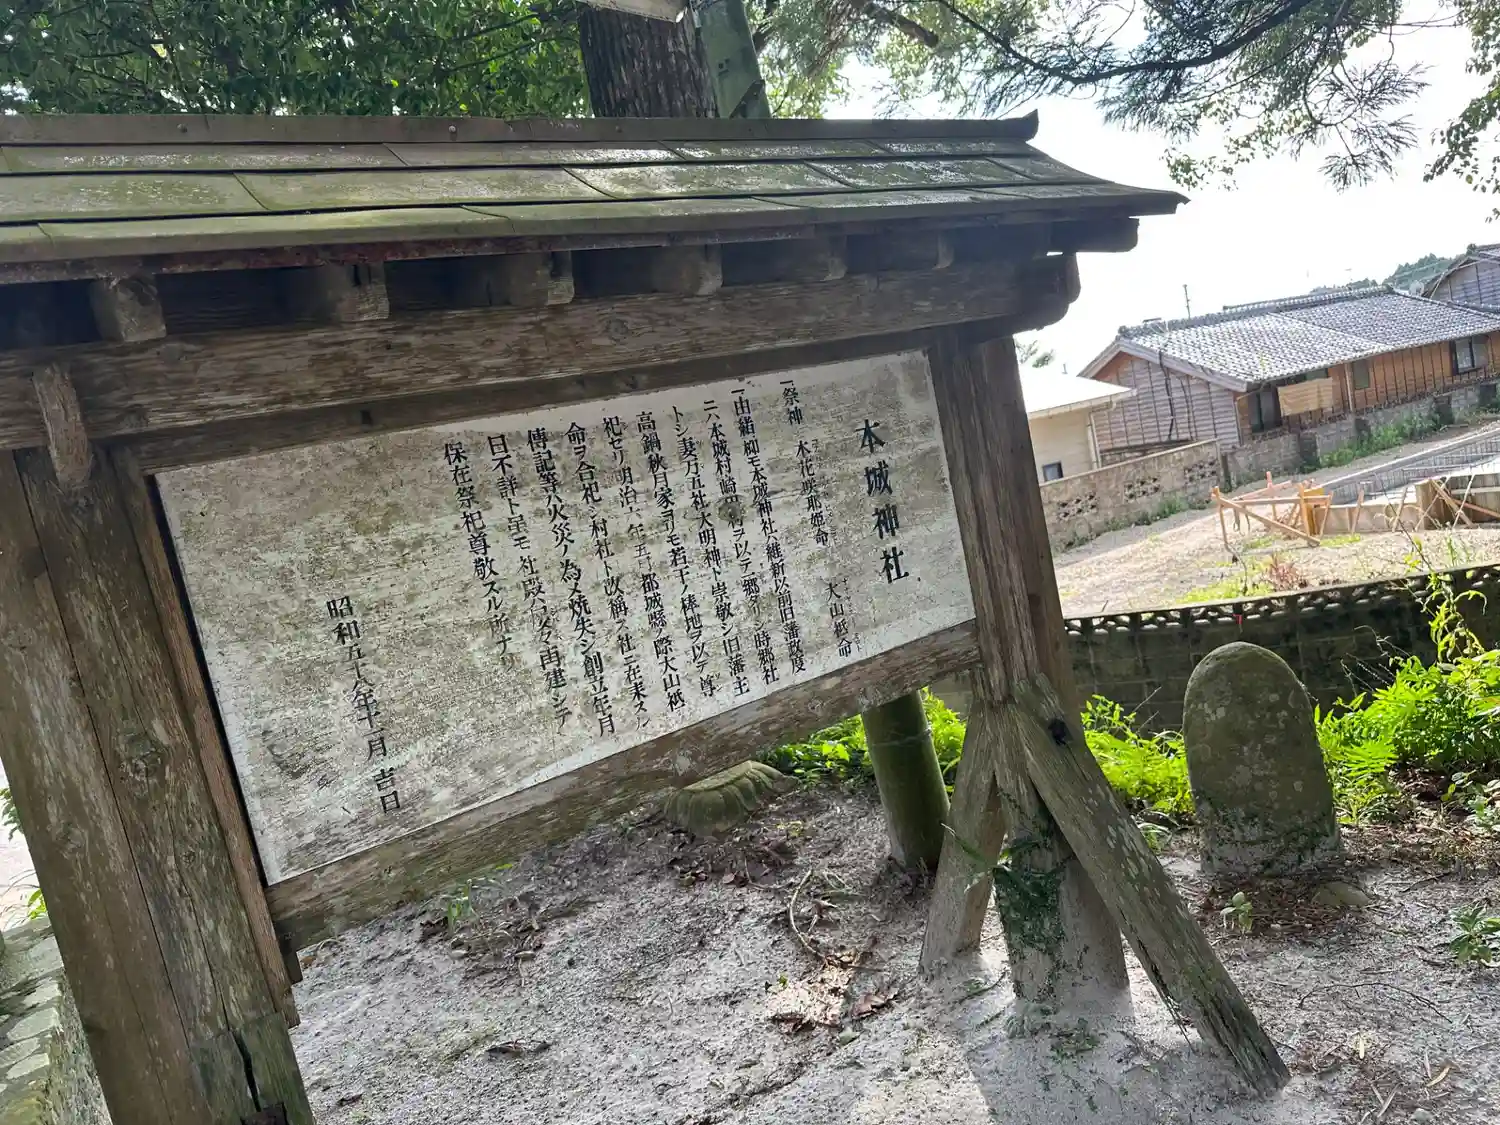 本城神社
一祭神 木花咲耶姫命 大山祇命
一由緒 抑モ本城神社ハ維新以前旧藩政度
ニハ本城村崎田村ヲ以テ郷タリシ時郷社
トシ妻万五社大明神ト崇敬シ旧藩主
高鍋秋月家ヨリモ若干ノ捧地ヲ以テ尊
祀セリ明治六年五月都城縣ノ際大山祗
命ヲ合祀シ村社ト改稱ス社ニ在来スル
傳記等ハ火災ノ為メ焼失シ創立年月
日不詳ト呈モ社殿ハメタ再建シテ
保在祭祀尊敬スル所ナリ
昭和五十八年十一月吉日